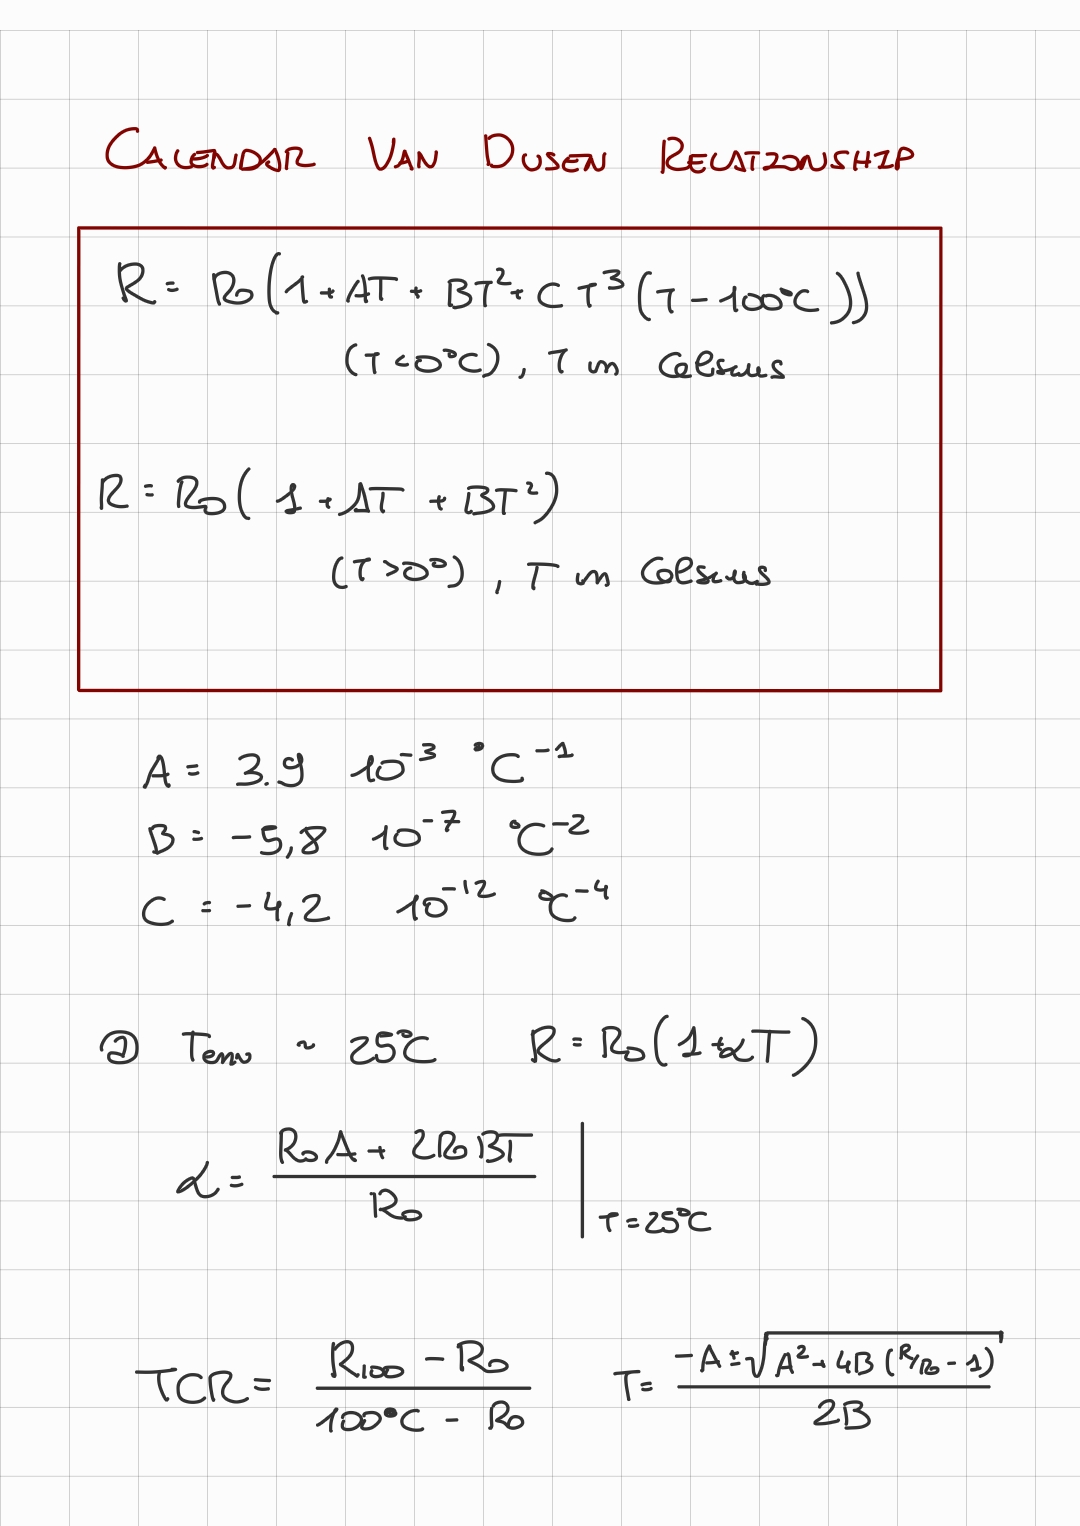 CALENDAR VAN DUSEN RELATIONSHIP
R = R₀(1 + AT + BT² + CT³(T - 100°C))
(T < 0°C), T in Celsius
R = R₀(1 + AT + BT²)
(T > 0°), T in Celsius
A = 3.9 10⁻³ °C⁻¹
B = -5,8 10⁻⁷ °C⁻²
C = -4,2 10⁻¹² °C⁻⁴
@ Tenv ~ 25°C R = R₀(1 + αT)
α = (R₀A + 2R₀BT) / R₀ | T = 25°C
TCR = (R₁₀₀ - R₀) / (100°C - R₀) T = (-A ± √(A² + 4B(R/R₀ - 1))) / 2B